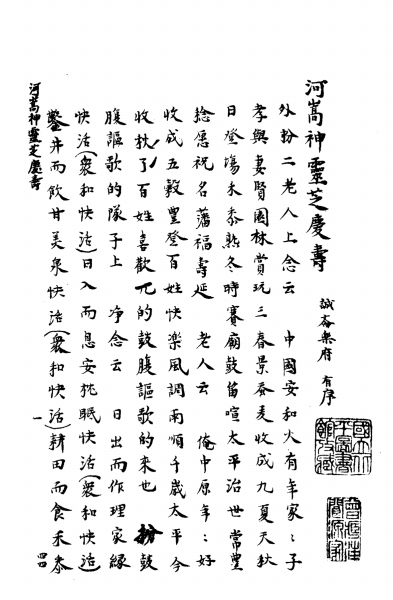 河嵩神靈芝慶壽
誠齋樂府 有序
國立北
平圖書
館收藏
外扮二老人上念云 中國安和大有年家〻子
孝與妻賢園林賞玩三春景蚕麦收成九夏天秋
日登場禾黍熟冬時賽廟鼓笛喧太平治世常豐
稔愿祝名藩福壽延 老人云 俺中原年〻好
收成五穀豐登百姓快樂風調雨順千歲太平今
收秋了百姓喜歡兀的鼓腹謳歌的來也 扮鼓
腹謳歌的隊子上 净念云 日出而作理家緣
快活(衆和快活)日入而息安枕眠快活(衆和快活)
鑿井而飲甘美泉快活(衆和快活)耕田而食禾黍
河嵩神靈芝慶壽
一